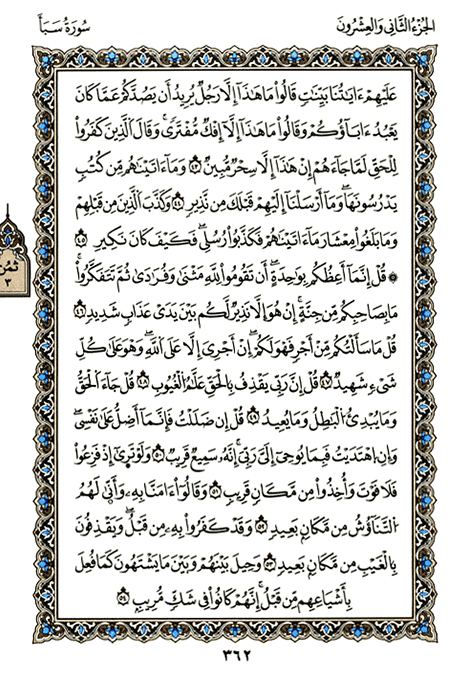 الجزء الثاني والعشرون
سورة سبأ
عَلَيْهِمْ ءَايَٰتُنَا بَيِّنَٰتٍ قَالُوا۟ مَا هَٰذَآ إِلَّا رَجُلٌ يُرِيدُ أَن يَصُدَّكُمْ عَمَّا كَانَ
يَعْبُدُ ءَابَآؤُكُمْ وَقَالُوا۟ مَا هَٰذَآ إِلَّآ إِفْكٌ مُّفْتَرًى وَقَالَ ٱلَّذِينَ كَفَرُوا۟
لِلْحَقِّ لَمَّا جَآءَهُمْ إِنْ هَٰذَآ إِلَّا سِحْرٌ مُّبِينٌ ٤٣ وَمَآ ءَاتَيْنَٰهُم مِّن كُتُبٍ
يَدْرُسُونَهَا وَمَآ أَرْسَلْنَآ إِلَيْهِمْ قَبْلَكَ مِن نَّذِيرٍ ٤٤ وَكَذَّبَ ٱلَّذِينَ مِن قَبْلِهِمْ
وَمَا بَلَغُوا۟ مِعْشَارَ مَآ ءَاتَيْنَٰهُمْ فَكَذَّبُوا۟ رُسُلِى فَكَيْفَ كَانَ نَكِيرِ ٤٥
۞ قُلْ إِنَّمَآ أَعِظُكُم بِوَٰحِدَةٍ أَن تَقُومُوا۟ لِلَّهِ مَثْنَىٰ وَفُرَٰدَىٰ ثُمَّ تَتَفَكَّرُوا۟
مَا بِصَاحِبِكُم مِّن جِنَّةٍ إِنْ هُوَ إِلَّا نَذِيرٌ لَّكُم بَيْنَ يَدَىْ عَذَابٍ شَدِيدٍ ٤٦
قُلْ مَا سَأَلْتُكُم مِّنْ أَجْرٍ فَهُوَ لَكُمْ إِنْ أَجْرِىَ إِلَّا عَلَى ٱللَّهِ وَهُوَ عَلَىٰ كُلِّ
شَىْءٍ شَهِيدٌ ٤٧ قُلْ إِنَّ رَبِّى يَقْذِفُ بِٱلْحَقِّ عَلَّٰمُ ٱلْغُيُوبِ ٤٨ قُلْ جَآءَ ٱلْحَقُّ
وَمَا يُبْدِئُ ٱلْبَٰطِلُ وَمَا يُعِيدُ ٤٩ قُلْ إِن ضَلَلْتُ فَإِنَّمَآ أَضِلُّ عَلَىٰ نَفْسِى
وَإِنِ ٱهْتَدَيْتُ فَبِمَا يُوحِىٓ إِلَىَّ رَبِّىٓ إِنَّهُۥ سَمِيعٌ قَرِيبٌ ٥٠ وَلَوْ تَرَىٰٓ إِذْ فَزِعُوا۟
فَلَا فَوْتَ وَأُخِذُوا۟ مِن مَّكَانٍ قَرِيبٍ ٥١ وَقَالُوٓا۟ ءَامَنَّا بِهِۦ وَأَنَّىٰ لَهُمُ
ٱلتَّنَاؤُشُ مِن مَّكَانٍۭ بَعِيدٍ ٥٢ وَقَدْ كَفَرُوا۟ بِهِۦ مِن قَبْلُ وَيَقْذِفُونَ
بِٱلْغَيْبِ مِن مَّكَانٍۭ بَعِيدٍ ٥٣ وَحِيلَ بَيْنَهُمْ وَبَيْنَ مَا يَشْتَهُونَ كَمَا فُعِلَ
بِأَشْيَاعِهِم مِّن قَبْلُ إِنَّهُمْ كَانُوا۟ فِى شَكٍّ مُّرِيبٍۭ ٥٤
ثمن
٣
٣٦٢